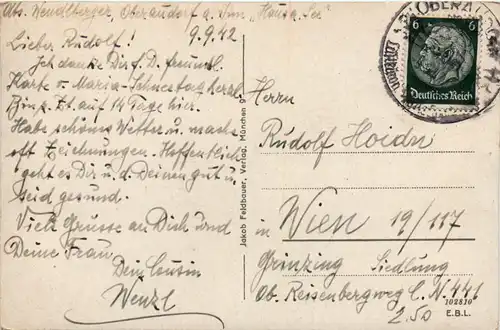 Abs. Wendlberger, Oberaudorf a. Inn "Haus a. See"
9.9.42
Lieber Rudolf!
Ich danke Dir f. D. freundl.
Karte v. Maria-Schnee tag herzl.
Bin z. Zt. auf 14 Tage hier.
Habe schönes Wetter u. mache
oft Zeichnungen. Hoffentlich
geht es Dir u. d. Deinen gut u.
seid gesund.
Viele Grüsse an Dich und
Deine Frau
Dein Cousin
Wenzl
Jakob Feldbauer, Verlag, München 9
OBERAUDORF
6 6
Deutsches Reich
Herrn
Rudolf Hoidn
in Wien 19/117
Grinzing Siedlung
Ob. Reisenbergweg C. N. 441
102810
E.B.L.
2.50